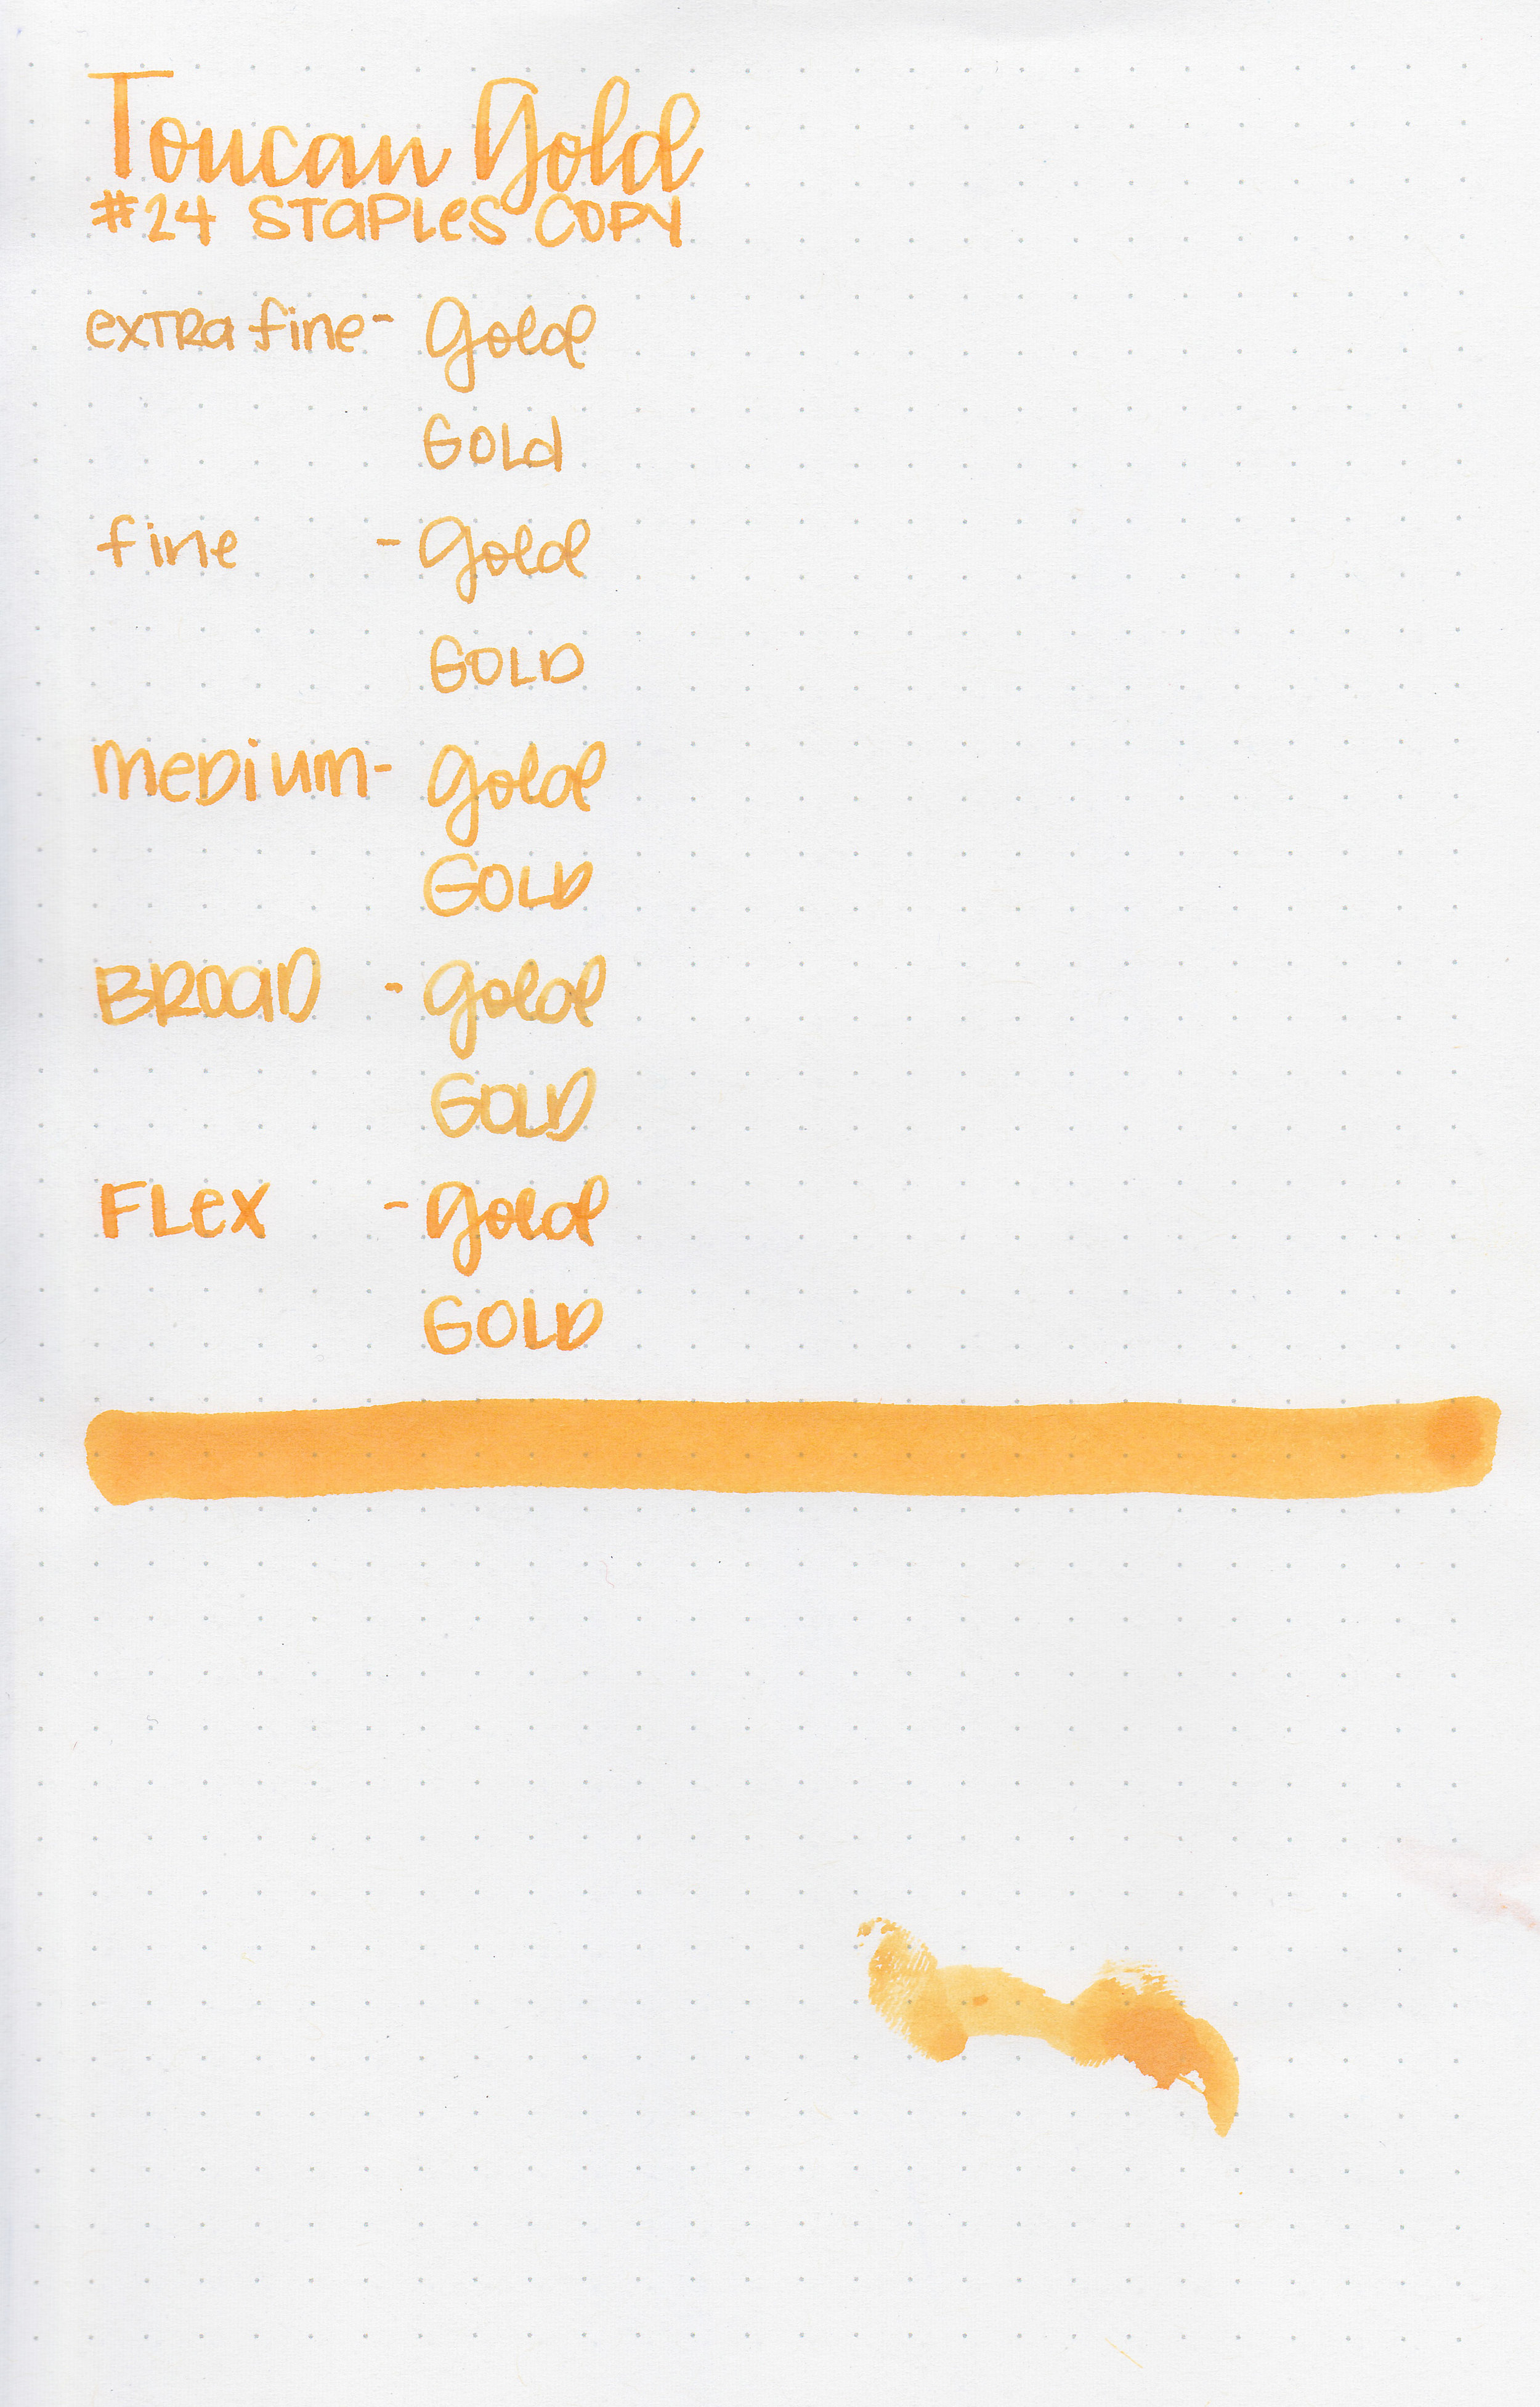 Toucan Gold
#24 STAPLeS COPY
exTRa fine - Gold
GOLd
fine - Gold
GOLD
MeDium - Gold
GOLD
BROaD - Gold
GOLD
FLex - Gold
GOLD